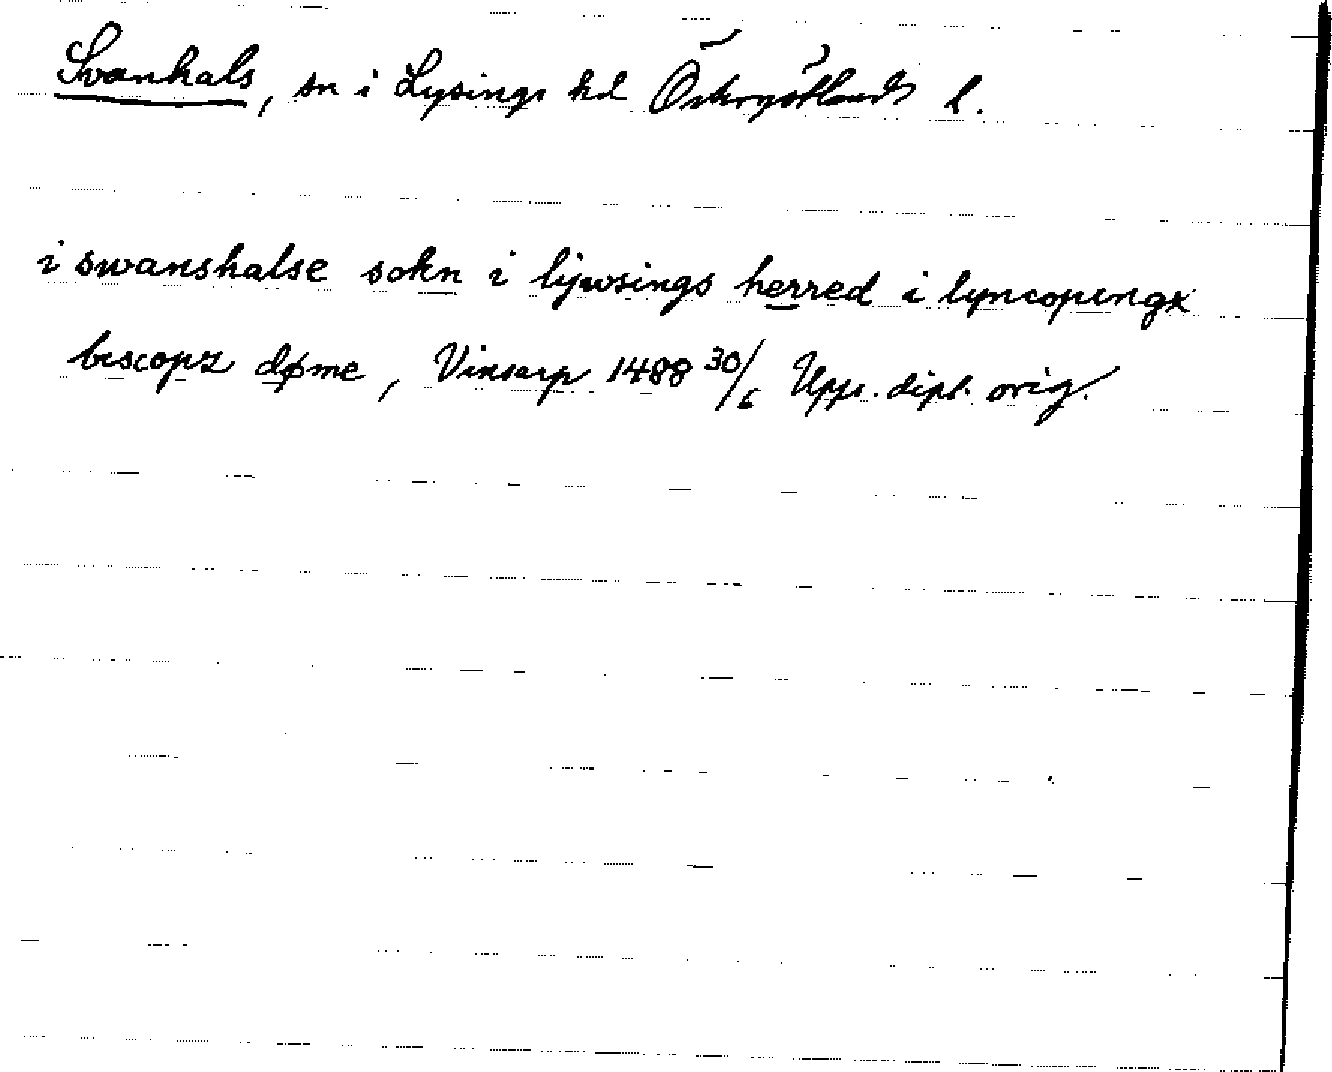 Svanhals, sn i Lysings hd Östergötlands l.
i swanshalse sokn i lijwsings herred i lyncopungx
biscopz døme, Vinsarp 1488 30/6 Upps. dipl. orig.